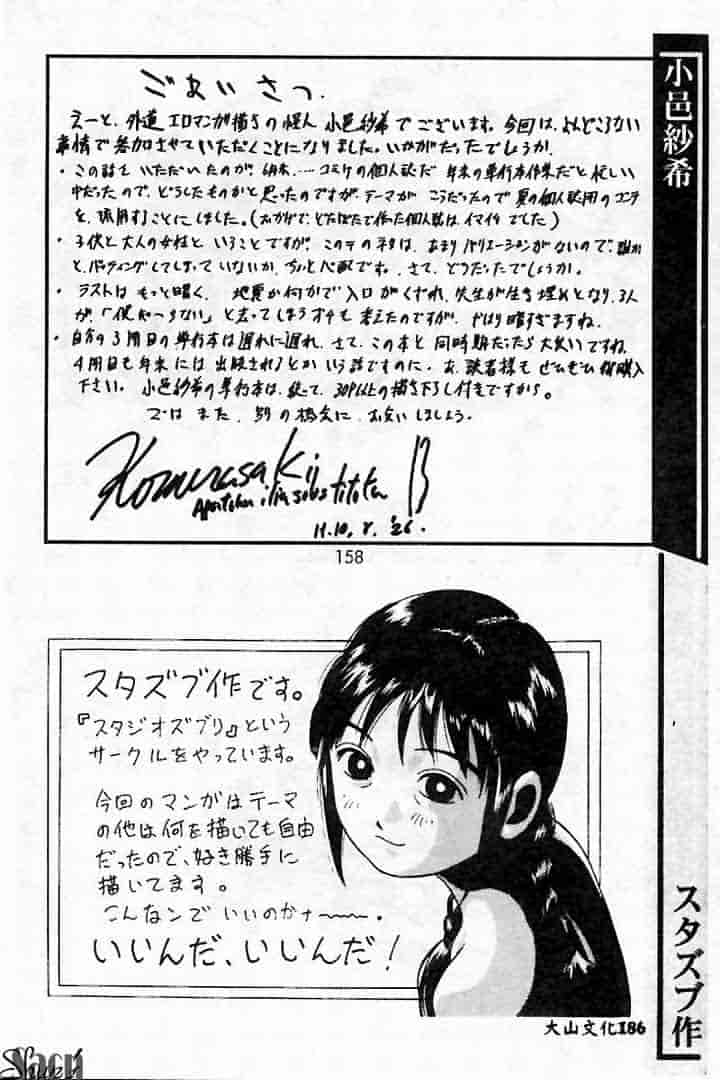 小邑紗希
ごあいさつ.
えーと、外道エロマンガ描きの怪人 小邑紗希でございます。今回は、よんどころない
事情で参加させていただくことになりました。いかがだったでしょうか.
・この話をいただいたのが、6月末、… コミケの個人誌だ 年末の単行本作業だと忙しい
中だったので、どうしたものかと思ったのですが、テーマが こうだったので 夏の個人誌用のコンテ
を、流用することにしました。(おかげで、どたばたで作った個人誌は、イマイチでした)
・子供と大人の女性と、いうことですが、このテのネタは、あまりバリエーションがないので、誰か
と、バッティングしてしまっていないか、ちょっと心配です。さて、どうだったでしょうか。
・ラストは もっと暗く、地震か何かで入口がくずれ、先生が生き埋めとなり、3人
が、「仕やーつもない」と去ってしまうオチも 考えたのですが、やはり暗すぎますね.
・自分の3冊目の単行本は遅れに遅れ、さて、この本と同時期だったら大笑いですね.
4冊目も年末には出版されるとかいう話ですのに. お、読者様も ぜひぜひ御購入
下さい. 小邑紗希の単行本は、総て、30P以上の描き下ろし付きですから。
では また、別の機会に、お会いしましょう.
Komurasaki
H.10, 8. 26.
158
スタズブ作
スタズブ作です。
『スタジオズブリ』という
サークルをやっています。
今回のマンガはテーマ
の他は何を描いても自由
だったので、好き勝手に
描いてます。
こんなンで いいのかナ〜〜〜.
いいんだ、いいんだ!
大山文化186